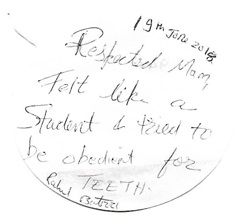 19th June 2018
Respected Mam,
Felt like a
Student & tried to
be obedient for
TEETH.
Rahul Batra